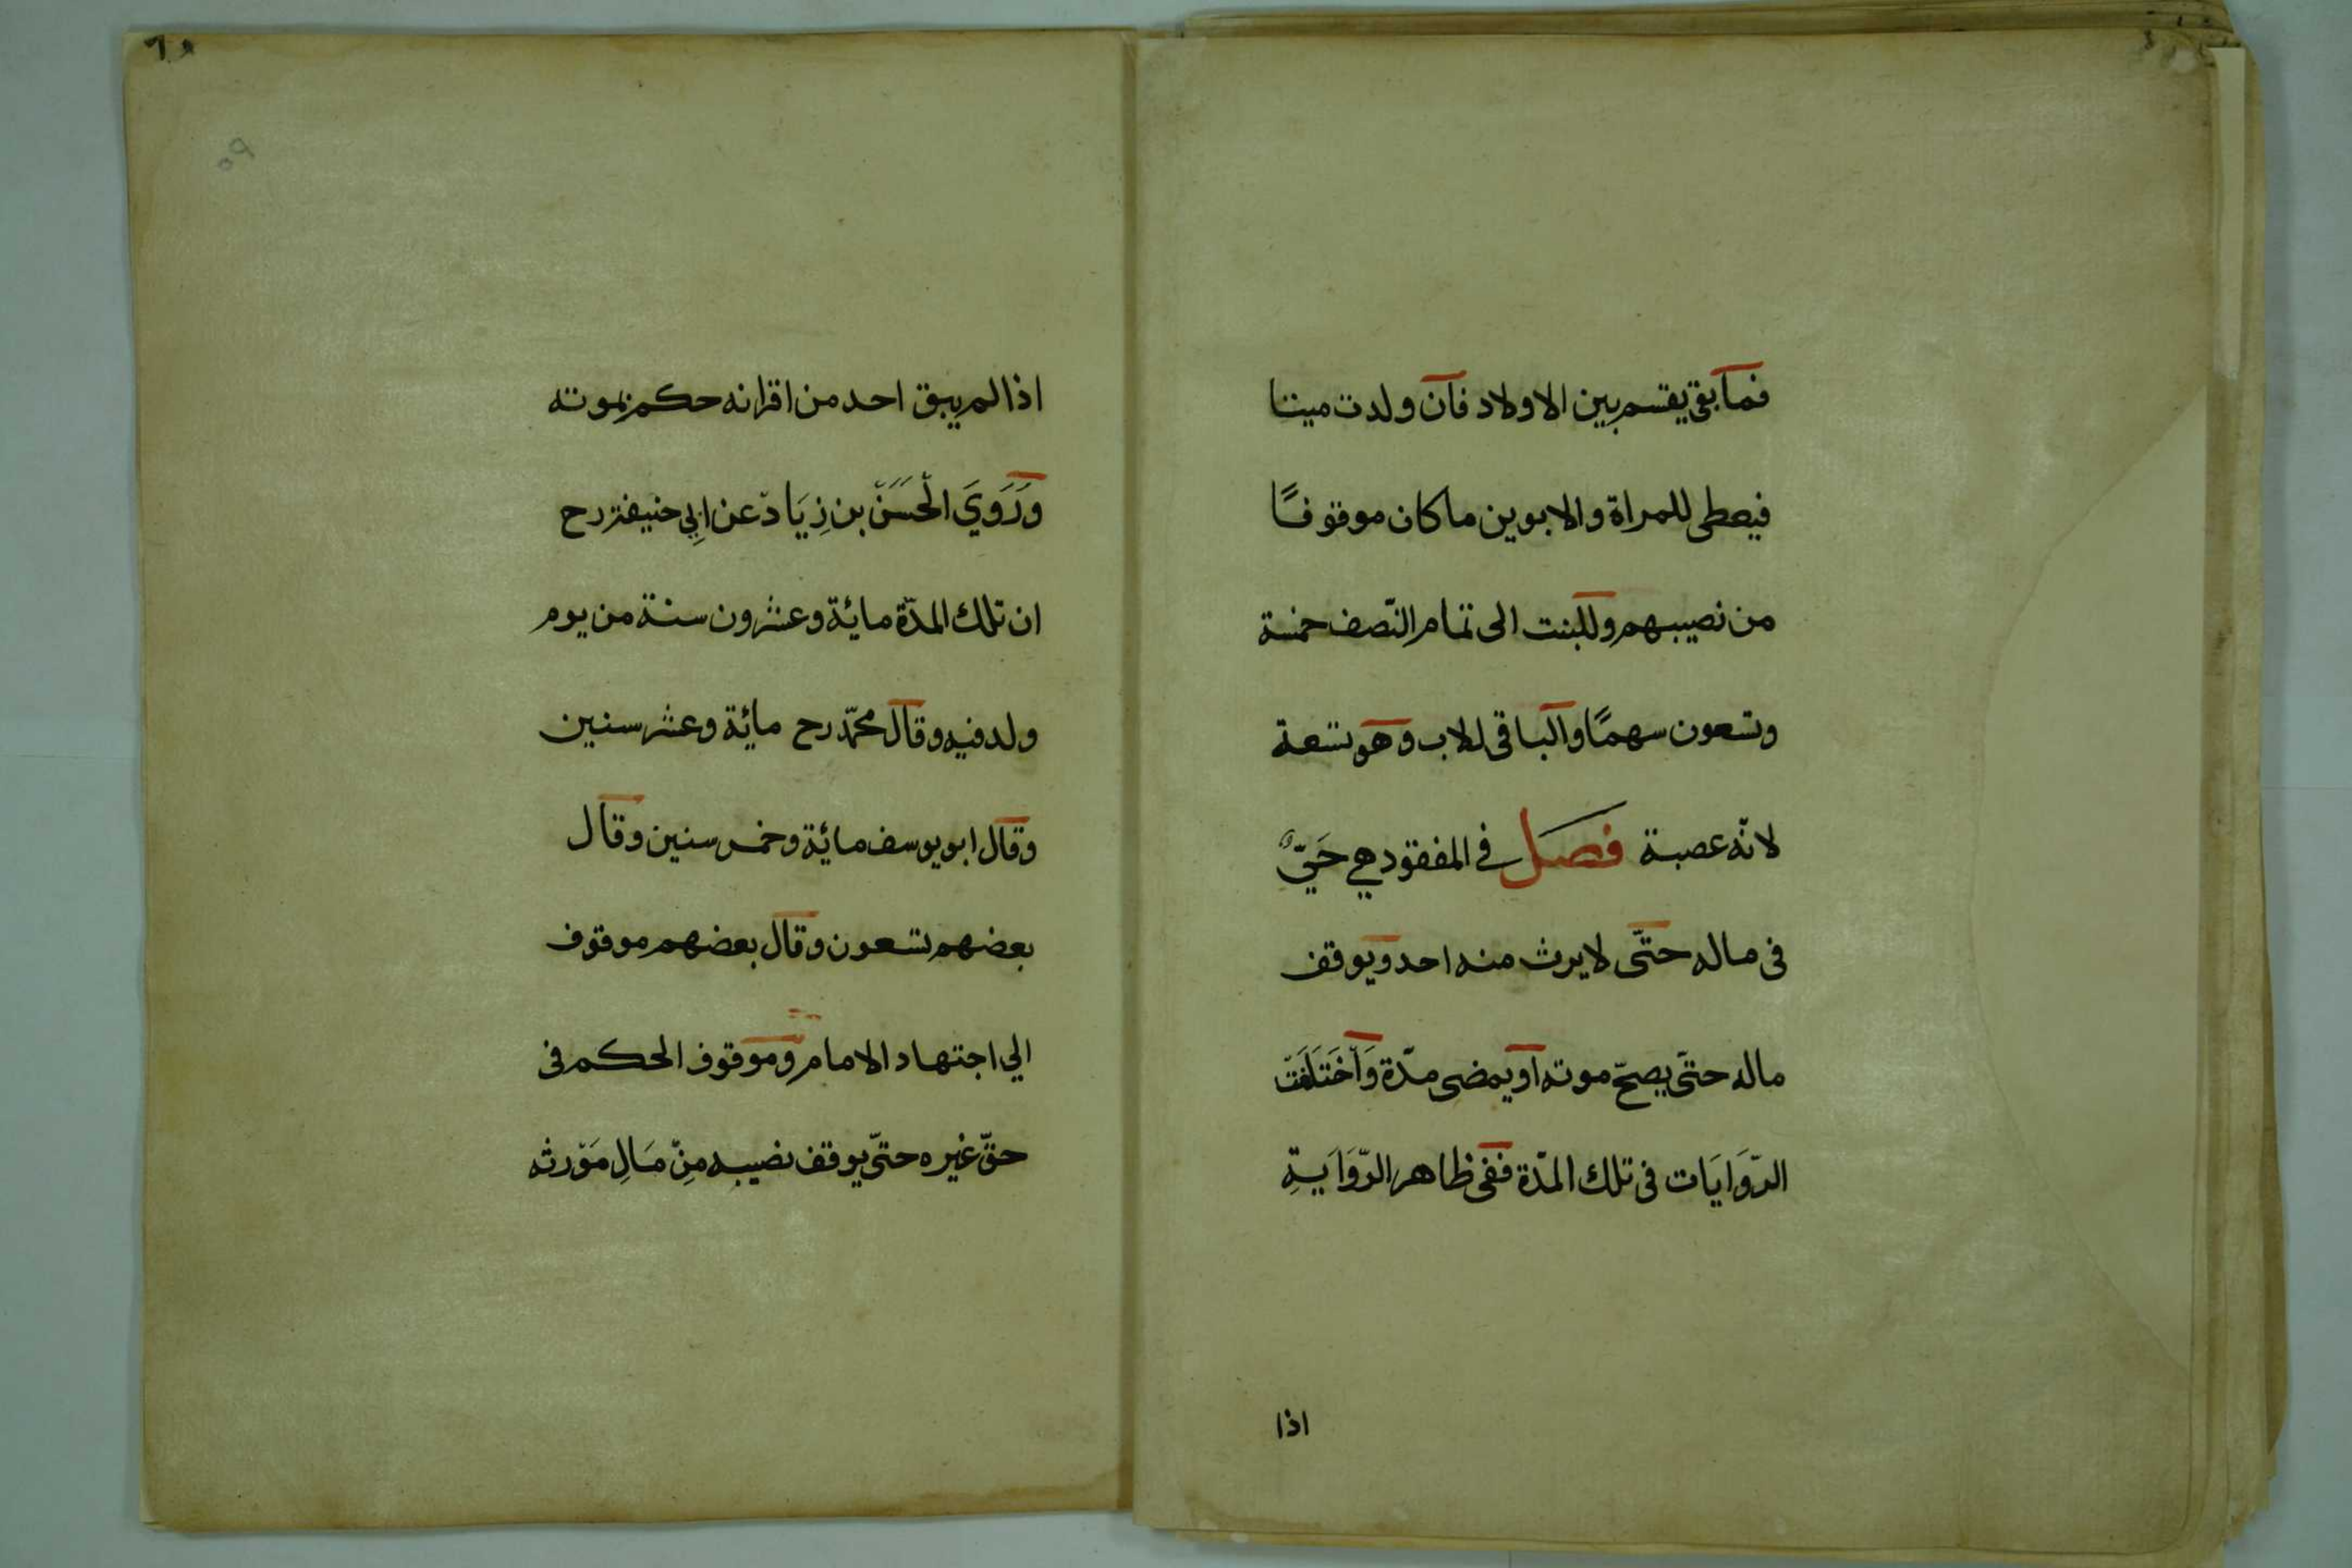 فما بقى يقسم بين الاولاد فان ولدت ميتا
فيعطى للمراة والابوين ما كان موقوفًا
من نصيبهم وللبنت الى تمام النّصف خمسة
وتسعون سهمًا والباقى للاب وهو تسعة
لانّه عصبة فصل في المفقود هي حَيّ
فى ماله حتّى لا يرث منه احد ويوقف
ماله حتّى يصحّ موته او يمضى مدّة وَاخْتَلَفَتْ
الرّوَايَات فى تلك المدّة ففى ظاهر الرّوَايَةِ
اذا
اذا لم يبق احد من اقرانه حكم بموته
وَرَوَيَ الْحَسَنْ بن زِيَادْ عن ابِي حنيفة رح
ان تلك المدّة مائة وعشرون سنة من يوم
ولد فيه وقال محمّد رح مائة وعشر سنين
وقال ابو يوسف مائة وخمس سنين وقال
بعضهم تسعون وقال بعضهم موقوف
الي اجتهاد الامام وموقوف الحكم فى
حقّ غيره حتّى يوقف نصيبه مِنْ مَالِ مَوْرثه
٥٩